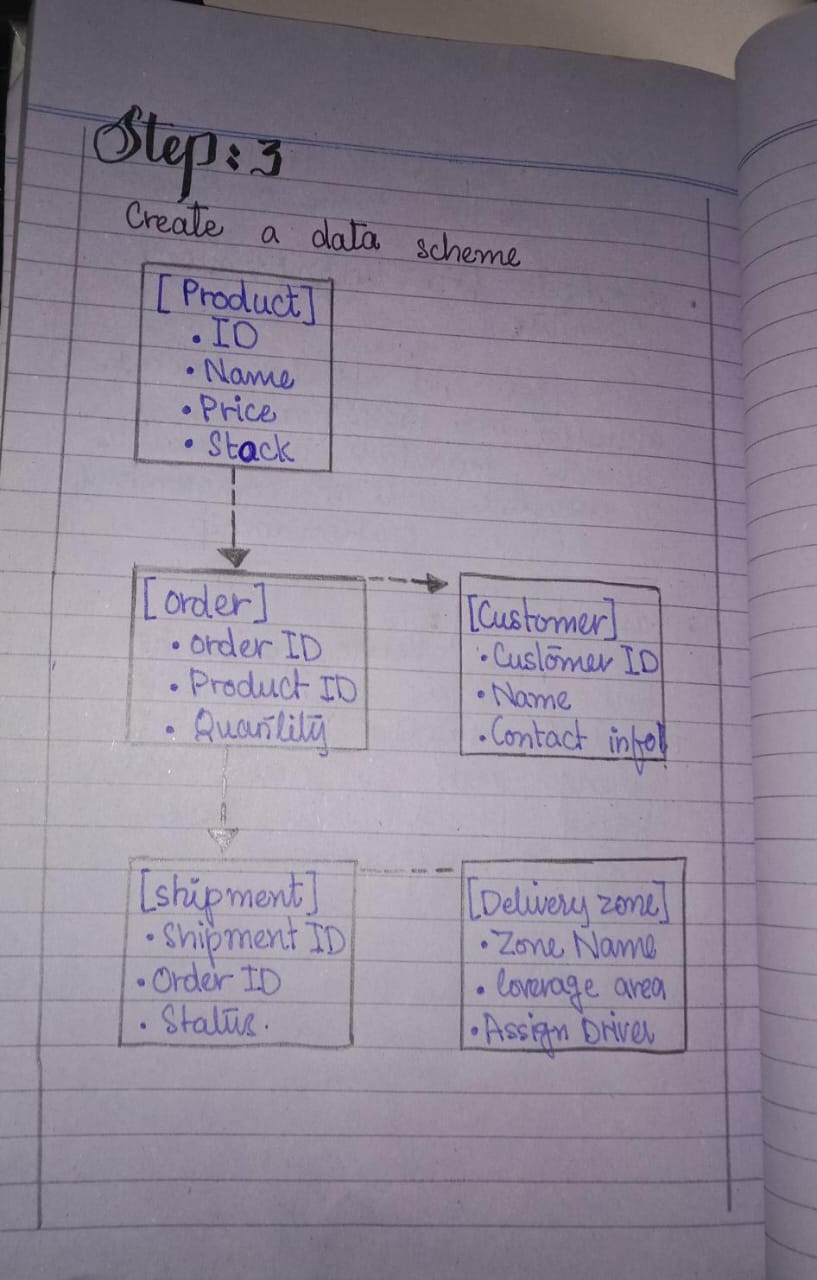 Step: 3
Create a data scheme
[Product]
• ID
• Name
• Price
• Stack
[order]
• order ID
• Product ID
• Quantity
[Customer]
• Customer ID
• Name
• Contact info
[shipment]
• Shipment ID
• Order ID
• Status.
[Delivery zone]
• Zone Name
• Coverage area
• Assign Driver